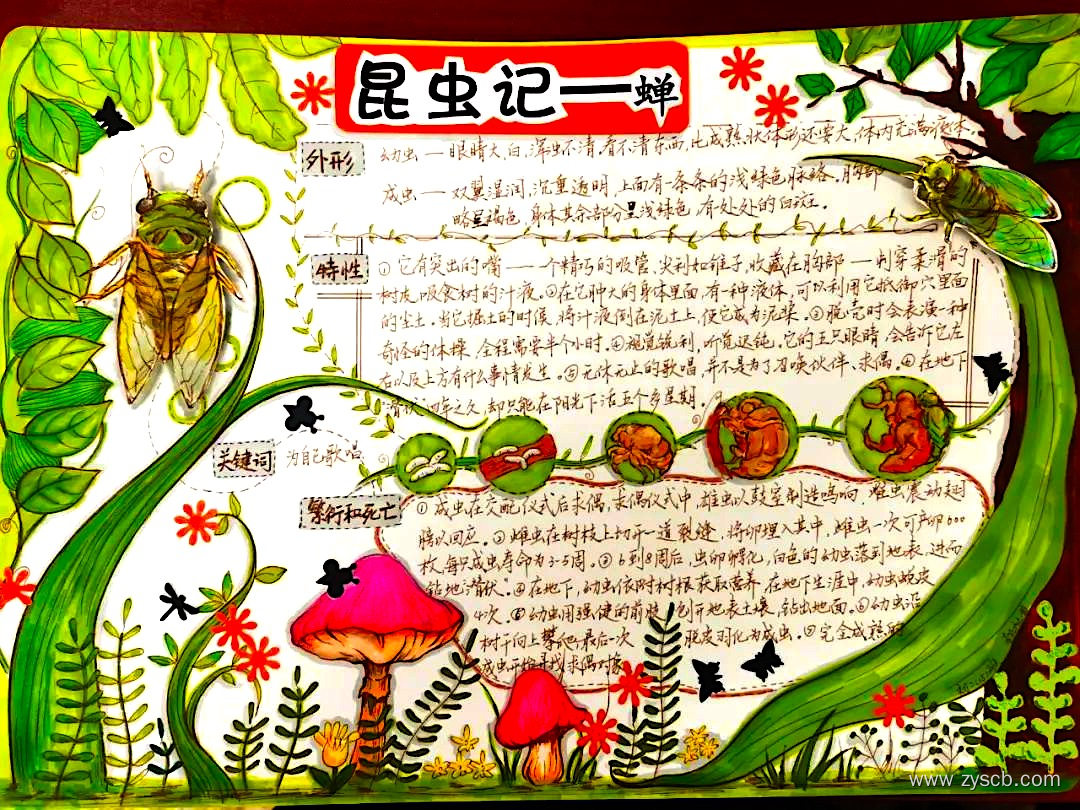 昆虫记—蝉
外形
幼虫—眼睛大,白,浑虫不清,看不清东西,比成熟状体形还要大,体内充满液体.
成虫—双翼湿润,沉重透明,上面有一条条的浅绿色脉络.胸部
略呈褐色,身体其余部分呈浅绿色,有处处的白斑.
特性
①它有突出的嘴—一个精巧的吸管,尖利如锥子,收藏在胸部—刺穿柔滑的
树皮,吸食树的汁液.②在它肿大的身体里面,有一种液体,可以利用它抵御穴里面
的尘土.当它掘土的时候,将汁液倒在泥土上,使它成为泥浆.③脱壳时会表演一种
奇怪的体操,全程需要半个小时.④视觉锐利,听觉迟钝.它的五只眼睛,会告诉它左
右以及上方有什么事情发生.⑤无休无止的歌唱,并不是为了召唤伙伴、求偶.⑥在地下
潜伏四年之久,却只能在阳光下活五个多星期.
关键词
为自己歌唱
繁衍和死亡
①成虫在交配仪式后求偶,求偶仪式中,雄虫以鼓室制造鸣响,雌虫震动翅
膀以回应.②雌虫在树枝上切开一道裂缝,将卵埋入其中,雌虫一次可产卵600
枚,每只成虫寿命为3-5周.③6到8周后,虫卵孵化,白色的幼虫落到地表,进而
钻地"潜伏".④在地下,幼虫依附树根获取营养,在地下生涯中,幼虫蜕皮
4次.⑤幼虫用强健的前肢,刨开地表土壤,钻出地面.⑥幼虫沿
树干向上攀爬,最后一次 脱皮羽化为成虫.⑦完全成熟
成虫开始寻找求偶对象
www.zyscb.com